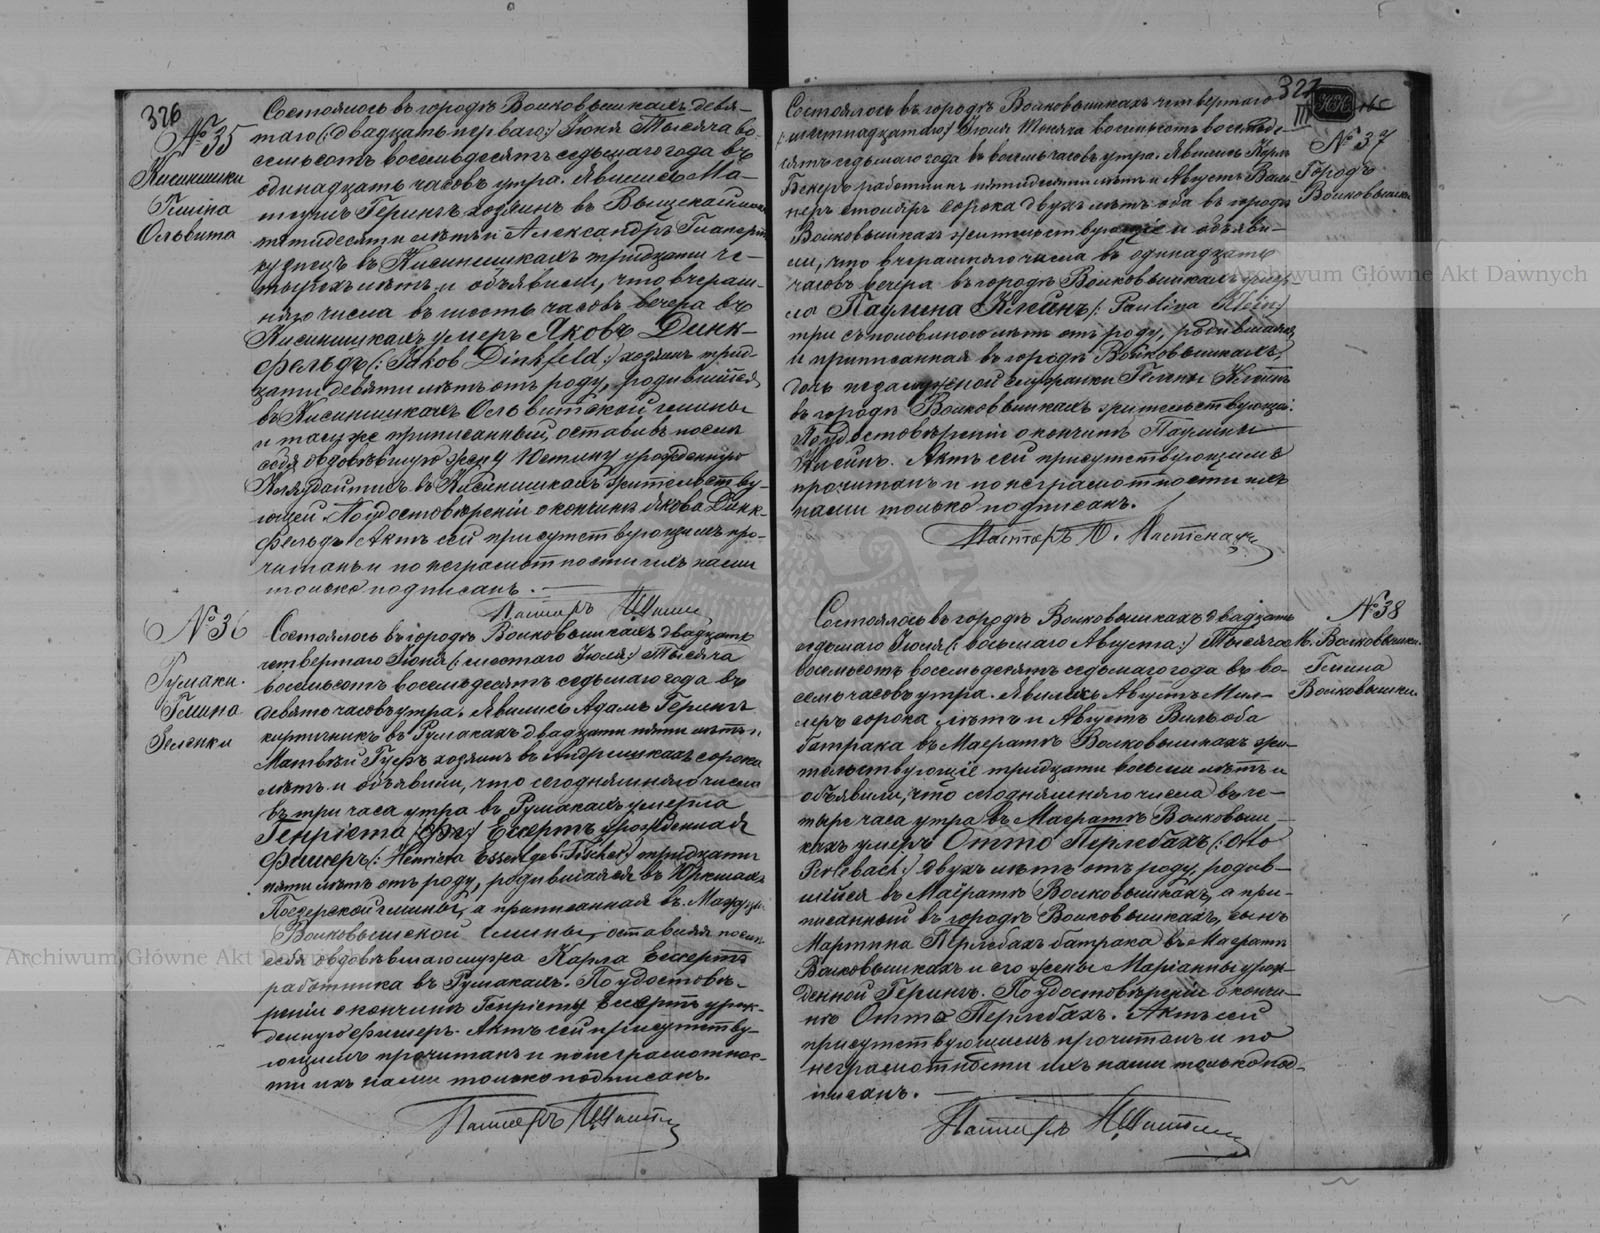 326
№ 35
Кисинишки
Гмина
Ольвита
Состоялось въ городѣ Волковышкахъ девя-
таго (: двадцать перваго:) Іюня Тысяча во-
семьсотъ восемьдесятъ седьмаго года въ
одинадцать часовъ утра. Явились Ма-
Герингъ хозяинъ въ
пятидесяти лѣтъ и Александръ
кузнецъ въ Кисинишкахъ тридцати че-
тырехъ лѣтъ и объявили, что вчераш-
няго числа въ шесть часовъ вечера въ
Кисинишкахъ умеръ Яковъ Динк-
фельдъ (: Jakob Dinkfeld:) хозяинъ трид-
цати девяти лѣтъ отъ роду, родившійся
въ Кисинишкахъ Ольвитской гмины
и тамже приписанный, оставивъ послѣ
себя овдовѣвшую жену Юстину урожденную
въ Кисинишкахъ жительству-
ющей. По удостовѣреніи о кончинѣ Якова Динк-
фельдъ Актъ сей присутствующимъ про-
читанъ и по неграмотности ихъ нами
только подписанъ.
Пасторъ
№ 36
Румаки.
Гмина
Зеленки
Состоялось въ городѣ Волковышкахъ двадцать
четвертаго Іюня (: шестаго Іюля:) Тысяча
восемьсотъ восемьдесятъ седьмаго года въ
девять часовъ утра. Явились Адамъ Герингъ
кирпичникъ въ Румакахъ двадцати пяти лѣтъ и
Матвѣй Гуфъ хозяинъ въ Андришкахъ сорока
лѣтъ и объявили, что сегодняшняго числа
въ три часа утра въ Румакахъ умерла
Генріета Ессертъ урожденная
Фишеръ (: Henrieta Essert geb. Fischer:) тридцати
пяти лѣтъ отъ роду, родившаяся въ
гмины, а приписанная въ
Волковышской гмины, оставивъ послѣ
себя овдовѣвшаго мужа Карла Ессертъ
работника въ Румакахъ. По удостовѣ-
реніи о кончинѣ Генріеты Ессертъ урож-
денную Фишеръ. Актъ сей присутству-
ющимъ прочитанъ и по неграмотнос-
ти ихъ нами только подписанъ.
Пасторъ
327
III
№ 37
Городъ
Волковышки
Состоялось въ городѣ Волковышкахъ четвертаго
(: шестнадцатаго:) Іюля Тысяча восемьсотъ восемьде-
сятъ седьмаго года въ восемь часовъ утра. Явились Карлъ
Бекеръ работникъ пятидесяти лѣтъ и Августъ Валь-
неръ столяръ сорока двухъ лѣтъ оба въ городѣ
Волковышкахъ жительствующіе и объяви-
ли, что вчерашняго числа въ одинадцать
часовъ вечера въ городѣ Волковышкахъ умер-
ла Паулина Клейнъ (: Paulina Klein:)
три съ половиною лѣтъ отъ роду, родившаяся
и приписанная въ городѣ Волковышкахъ,
дочь незамужней служанки Гелены Клейнъ
въ городѣ Волковышкахъ жительствующей.
По удостовѣреніи о кончинѣ Паулины
Клейнъ. Актъ сей присутствующимъ
прочитанъ и по неграмотности ихъ
нами только подписанъ.
Пасторъ
№ 38
М. Волковышки.
Гмина
Волковышки
Состоялось въ городѣ Волковышкахъ двадцать
седьмаго Іюля (: восьмаго Августа:) Тысяча
восемьсотъ восемьдесятъ седьмаго года въ во-
семь часовъ утра. Явились Августъ Мил-
леръ сорока лѣтъ и Августъ Виль оба
батрака въ Маератѣ Волковышкахъ жи-
тельствующіе тридцати восьми лѣтъ и
объявили, что сегодняшняго числа въ че-
тыре часа утра въ Маератѣ Волковыш-
кахъ умеръ Отто Перлебахъ (: Otto
Perlebach:) двухъ лѣтъ отъ роду, родив-
шійся въ Маератѣ Волковышкахъ, а при-
писанный въ городѣ Волковышкахъ, сынъ
Мартина Перлебахъ батрака въ Маератѣ
Волковышкахъ и его жены Маріанны урож-
денной Герингъ. По удостовѣреніи о кончи-
нѣ Отто Перлебахъ. Актъ сей
присутствующимъ прочитанъ и по
неграмотности ихъ нами только под-
писанъ.
Пасторъ
Archiwum Główne Akt Dawnych
Archiwum Główne Akt Dawnych